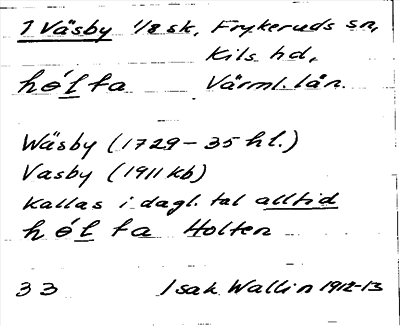 1 Väsby 1/8 sk, Frykeruds sn,
Kils hd,
hólta Värml. län.
Wäsby (1729-35 hl.)
Vasby (1911 kb)
Kallas i dagl. tal alltid
hólta Holten
33 Isak Wallin 1912-13